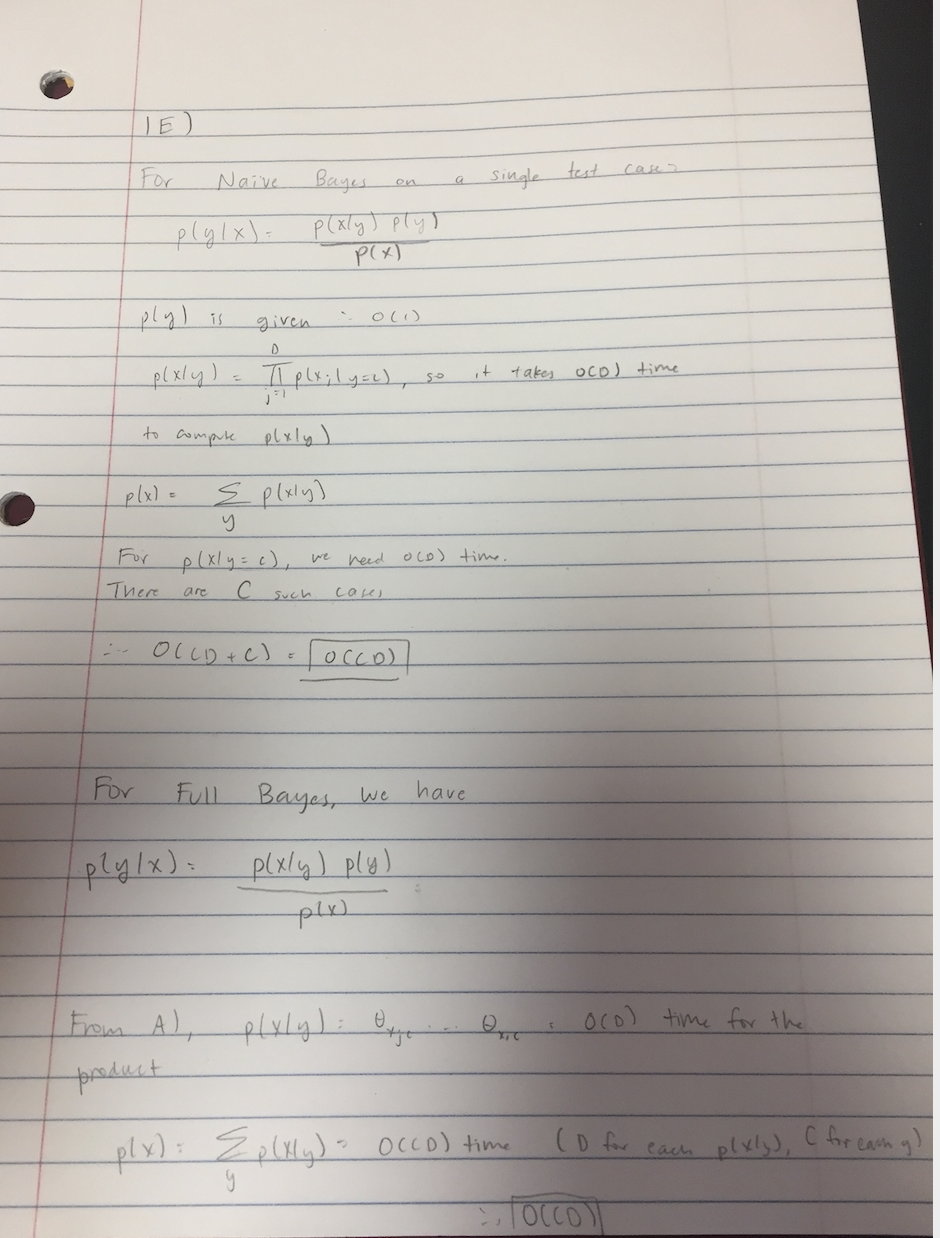 1E)
For Naive Bayes on a single test case:
p(y|x) = p(x|y) p(y) / p(x)
p(y) is given ∴ O(1)
p(x|y) = ∏_{j=1}^{D} p(x_j|y=c), so it takes O(D) time
to compute p(x|y)
p(x) = Σ_y p(x|y)
For p(x|y=c), we need O(D) time.
There are C such cases
∴ O(CD + C) = O(CD)
For Full Bayes, we have
p(y|x) = p(x|y) p(y) / p(x)
From A), p(x|y) = θ_{xjc} ... θ_{x1c} = O(D) time for the
product
p(x) = Σ_y p(x|y) = O(CD) time (D for each p(x|y), C for each y)
∴ O(CD)